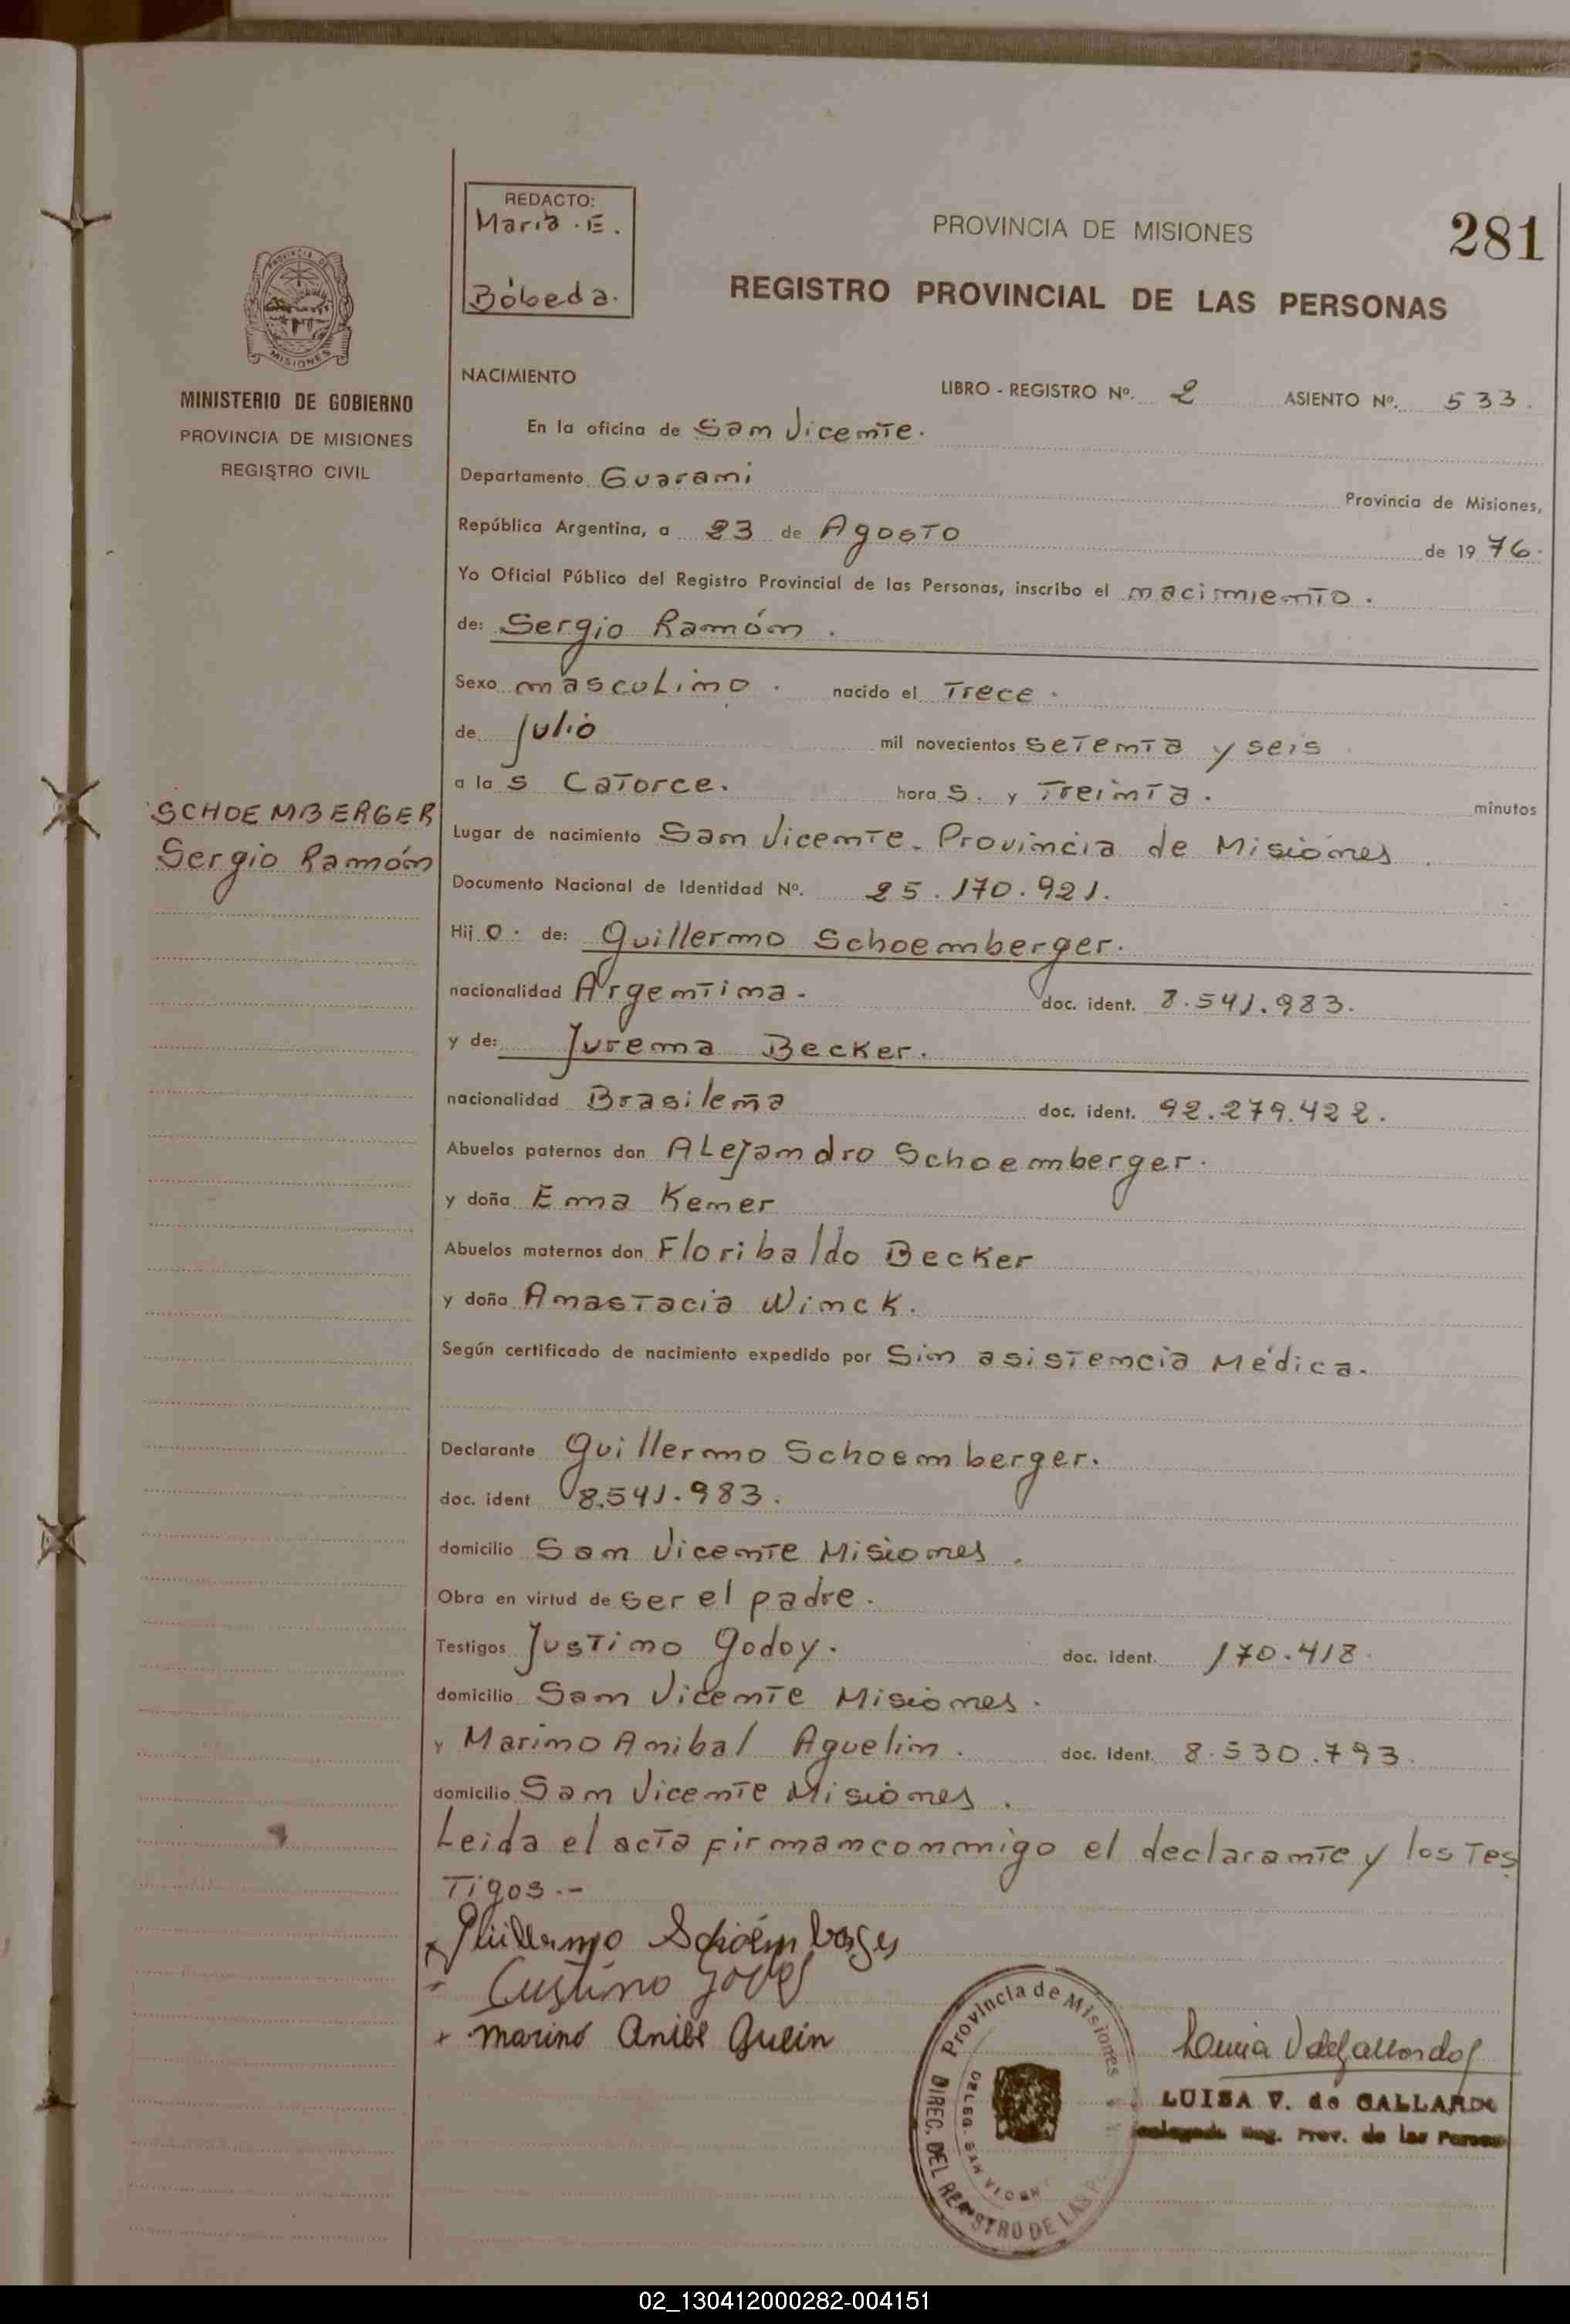 REDACTO:
Maria. E.
Bóbeda.
PROVINCIA DE MISIONES
281
REGISTRO PROVINCIAL DE LAS PERSONAS
PROVINCIA DE
MISIONES
MINISTERIO DE GOBIERNO
PROVINCIA DE MISIONES
REGISTRO CIVIL
NACIMIENTO
LIBRO - REGISTRO Nº. 2 ASIENTO Nº. 533.
En la oficina de San Vicente.
Departamento Guarani Provincia de Misiones,
República Argentina, a 23 de Agosto de 1976.
Yo Oficial Público del Registro Provincial de las Personas, inscribo el nacimiento.
de: Sergio Ramón.
Sexo masculino. nacido el Trece.
de Julio mil novecientos setenta y seis
a las Catorce. horas. y Treinta. minutos
SCHOEMBERGER
Sergio Ramón
Lugar de nacimiento San Vicente. Provincia de Misiones.
Documento Nacional de Identidad Nº. 25.170.921.
Hijo. de: Guillermo Schoemberger.
nacionalidad Argentina. doc. ident. 8.541.983.
y de: Jurema Becker.
nacionalidad Brasileña doc. ident. 92.279.422.
Abuelos paternos don Alejandro Schoemberger.
y doña Ema Kener
Abuelos maternos don Floribaldo Becker
y doña Anastacia Winck.
Según certificado de nacimiento expedido por Sin asistencia Médica.
Declarante Guillermo Schoemberger.
doc. ident 8.541.983.
domicilio San Vicente Misiones.
Obra en virtud de ser el padre.
Testigos Justino Godoy. doc. ident. 170.418.
domicilio San Vicente Misiones.
y Marino Anibal Aguelin. doc. ident. 8.530.793.
domicilio San Vicente Misiones.
Leida el acta firman conmigo el declarante y los Tes
Tigos.-
Guillermo
Marino
Provincia de Misiones
DIREC. DEL REGISTRO DE LAS P
DELEG. SAN VICEN
LUISA V. de GALLARDO
Reg. Prov. de las Personas
02_130412000282-004151